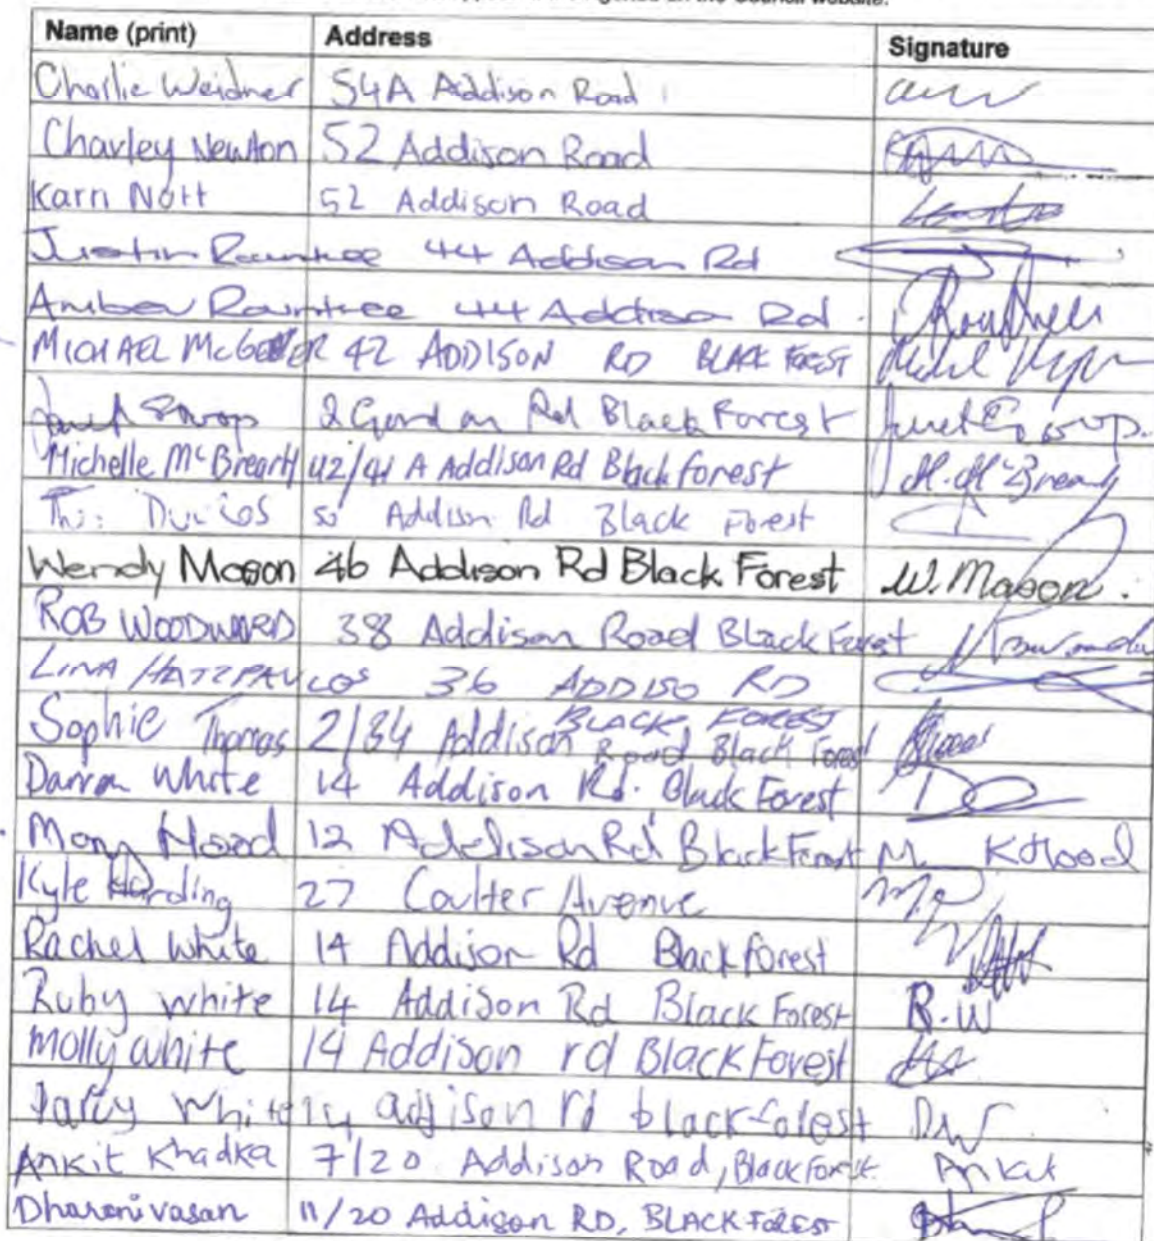 on the Council website.
Name (print) Address Signature
Charlie Weidner 54A Addison Road
Charley Newton 52 Addison Road
Karri Nott 52 Addison Road
Justin Rountree 44 Addison Rd
Amber Rountree 44 Addison Rd.
MICHAEL 42 ADDISON RD BLACK FOREST
Janet 2 Gordon Rd Black Forest
Michelle McBrearty 42/41 A Addison Rd Black forest
Addison Rd Black Forest
Wendy Mason 46 Addison Rd Black Forest W. Mason.
ROB WOODWARD 38 Addison Road Black Forest
LINA HATZPAVLOS 36 ADDISO RD
BLACK FOREST
Sophie Thomas 2/34 Addison Road Black Forest
Darren White 14 Addison Rd. Black Forest
Hood 12 Addison Rd Black Forest M KHood
Kyle Harding 27 Coulter Avenue
Rachel White 14 Addison Rd Black forest
Ruby white 14 Addison Rd Black Forest R.W
Molly white 14 Addison rd Black Forest
Darcy White 14 addison rd black forest DW
Ankit Khadka 7/20 Addison Road, Black Forest. Ankit
Dharanivasan 11/20 Addison RD, BLACK FOREST